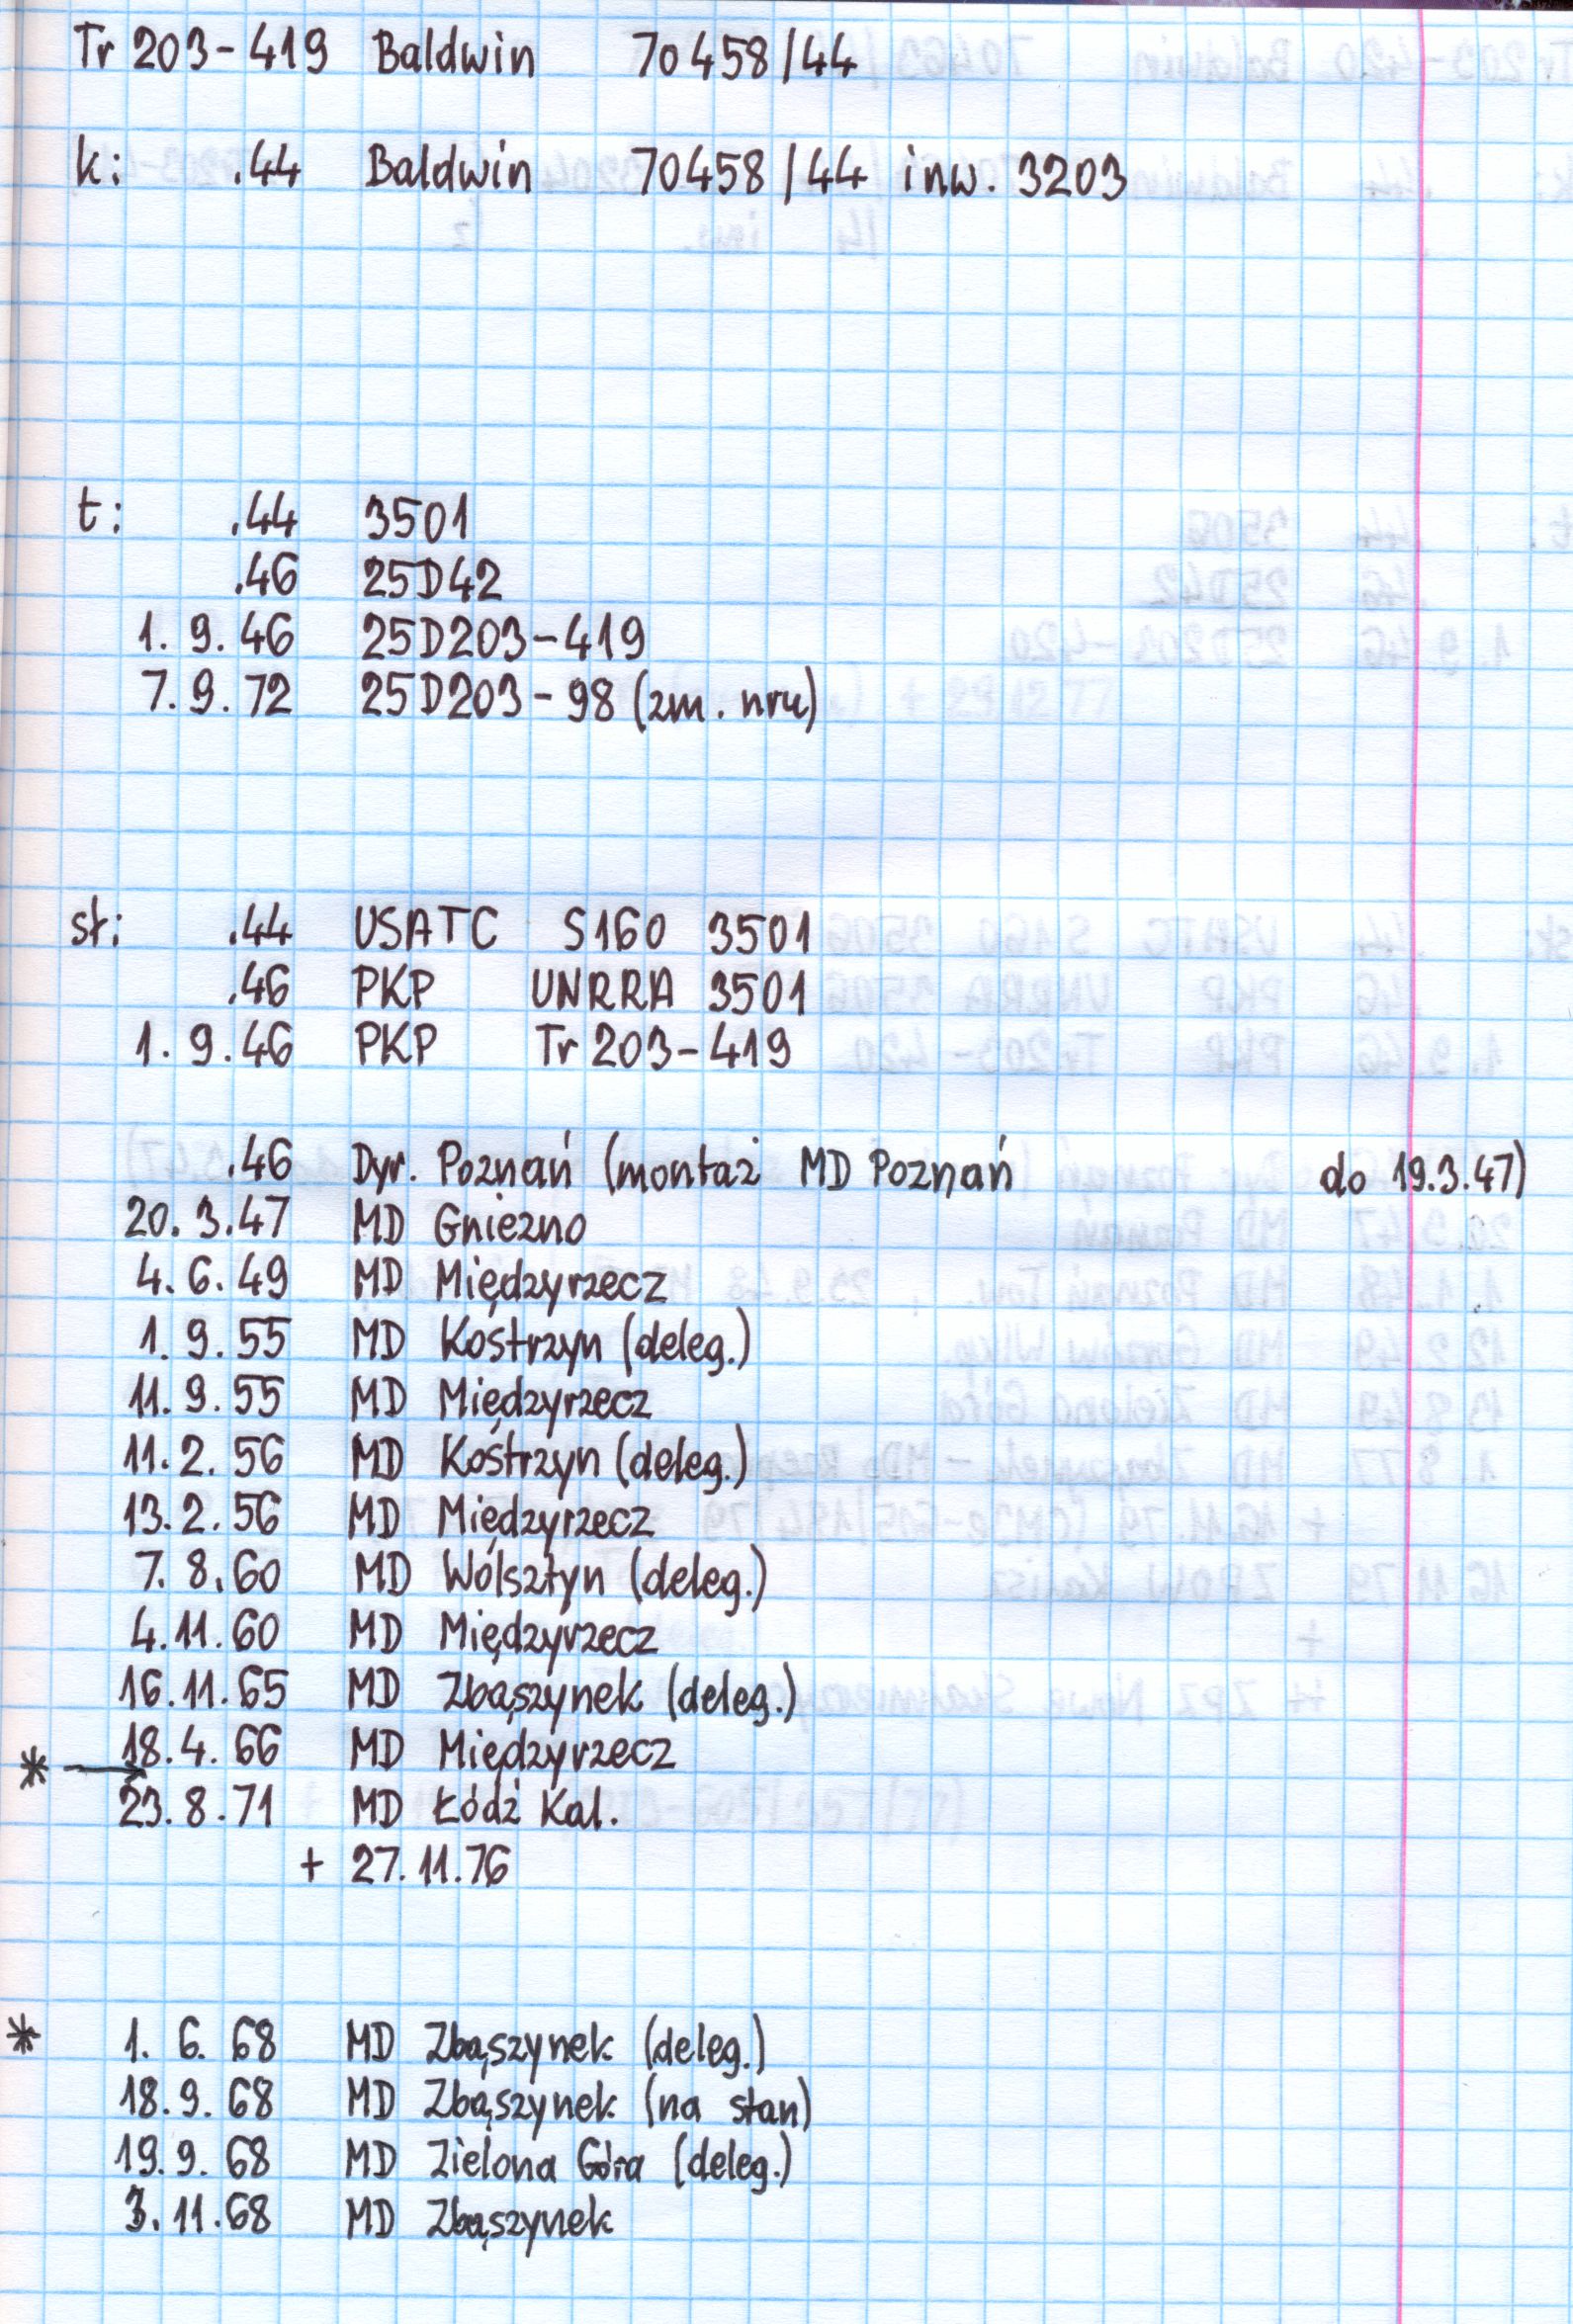 Tr 203-419 Baldwin 70458/44
k: .44 Baldwin 70458/44 inw. 3203
t: .44 3501
.46 25D42
1.9.46 25D203-419
7.9.72 25D203-98 (zm. nru)
sł: .44 USATC S160 3501
.46 PKP UNRRA 3501
1.9.46 PKP Tr 203-419
.46 Dyr. Poznań (montaż MD Poznań do 19.3.47)
20.3.47 MD Gniezno
4.6.49 MD Międzyrzecz
1.9.55 MD Kostrzyn (deleg.)
11.9.55 MD Międzyrzecz
11.2.56 MD Kostrzyn (deleg.)
13.2.56 MD Międzyrzecz
7.8.60 MD Wolsztyn (deleg.)
4.11.60 MD Międzyrzecz
16.11.65 MD Zbąszynek (deleg.)
18.4.66 MD Międzyrzecz
* → 23.8.71 MD Łódź Kal.
+ 27.11.76
* 1.6.68 MD Zbąszynek (deleg.)
18.9.68 MD Zbąszynek (na stan)
19.9.68 MD Zielona Góra (deleg.)
3.11.68 MD Zbąszynek